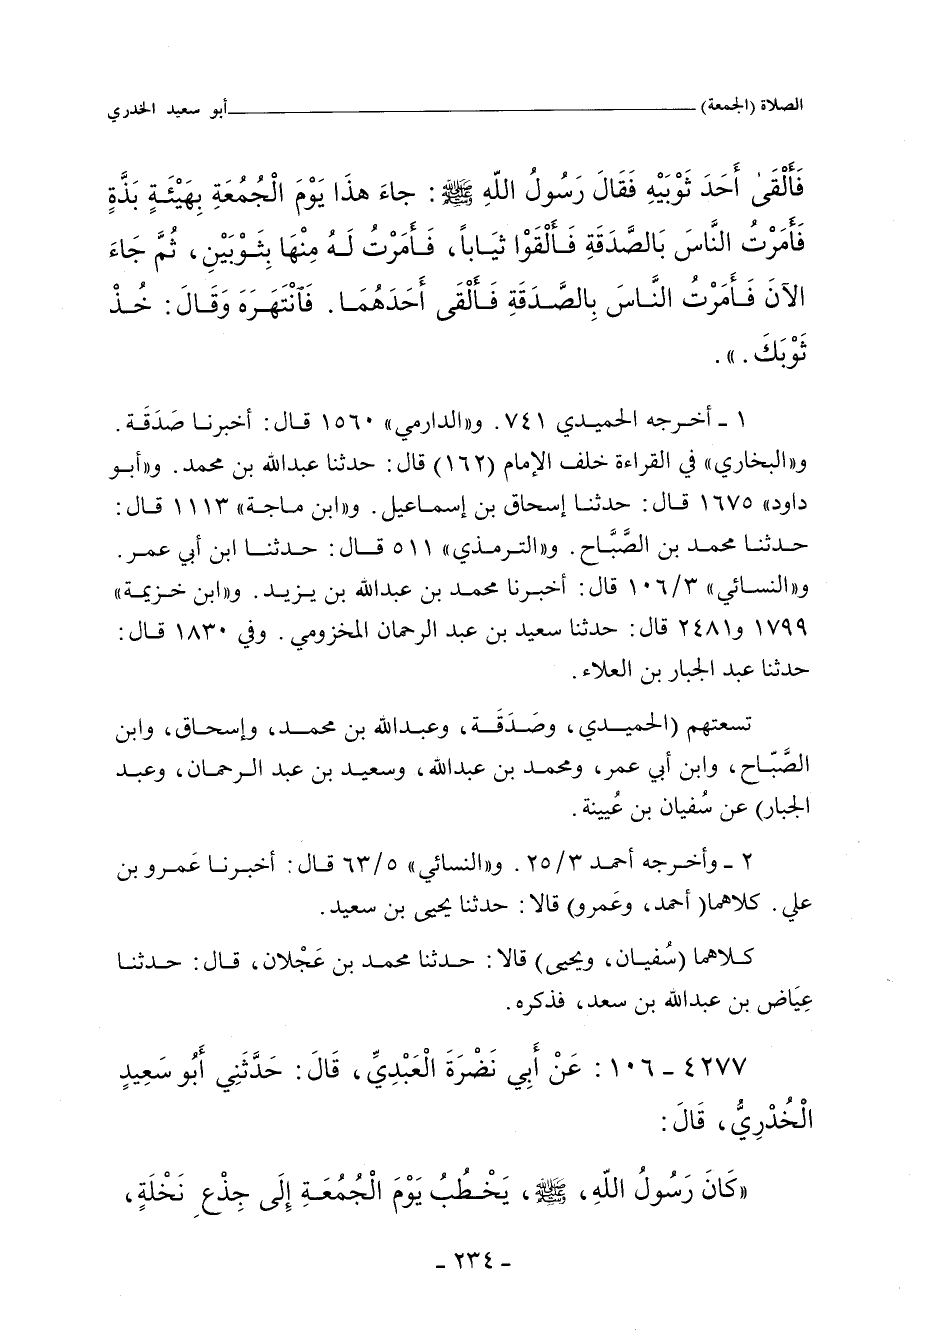 الصلاة (الجمعة) ــــــــــــــــــــــــــــــــ أبو سعيد الخدري
فَأَلْقَىٰ أَحَدَ ثَوْبَيْهِ فَقَالَ رَسُولُ اللّهِ ﷺ : جاءَ هذَا يَوْمَ الْجُمُعَةِ بِهَيْئَةٍ بَذَّةٍ
فَأَمَرْتُ النَّاسَ بَالصَّدَقَةِ فَأَلْقَوْا ثيَاباً، فَأَمَرْتُ لَهُ مِنْهَا بِثَوْبَيْنِ، ثُمَّ جَاءَ
الآنَ فَأَمَرْتُ النَّاسَ بِالصَّدَقَةِ فَأَلْقَى أَحَدَهُمَا. فَآنْتَهَرَهَ وَقَالَ: خُذْ
ثَوْبَكَ.».
١ ـ أخرجه الحميدي ٧٤١. و«الدارمي» ١٥٦٠ قال: أخبرنا صَدَقَة.
و«البخاري» في القراءة خلف الإمام (١٦٢) قال: حدثنا عبدالله بن محمد. و«أبو
داود» ١٦٧٥ قال: حدثنا إسحاق بن إسماعيل. و«ابن ماجة» ١١١٣ قال:
حدثنا محمد بن الصَّبَّاح. و«الترمذي» ٥١١ قال: حدثنا ابن أبي عمر.
و«النسائي» ١٠٦/٣ قال: أخبرنا محمد بن عبدالله بن يزيد. و«ابن خزيمة»
١٧٩٩ و٢٤٨١ قال: حدثنا سعيد بن عبد الرحمان المخزومي. وفي ١٨٣٠ قال:
حدثنا عبد الجبار بن العلاء.
تسعتهم (الحميدي، وصَدَقَة، وعبدالله بن محمد، وإسحاق، وابن
الصَّبّاح، وابن أبي عمر، ومحمد بن عبدالله، وسعيد بن عبد الرحمان، وعبد
الجبار) عن سُفيان بن عُيينة.
٢ ـ وأخرجه أحمد ٢٥/٣. و«النسائي» ٦٣/٥ قال: أخبرنا عَمرو بن
علي. كلاهما( أحمد، وعَمرو) قالا: حدثنا يحيى بن سعيد.
كلاهما (سُفيان، ويحيى) قالا: حدثنا محمد بن عَجْلان، قال: حدثنا
عِيَاض بن عبدالله بن سعد، فذكره.
٤٢٧٧ ـ ١٠٦ : عَنْ أَبِي نَضْرَةَ الْعَبْدِيِّ، قَالَ: حَدَّثَنِي أَبُو سَعِيدٍ
الْخُدْرِيُّ، قَالَ:
«كَانَ رَسُولُ اللّهِ، ﷺ، يَخْطُبُ يَوْمَ الْجُمُعَةِ إِلَى جِذْعِ نَخْلَةٍ،
ـ ٢٣٤ ـ